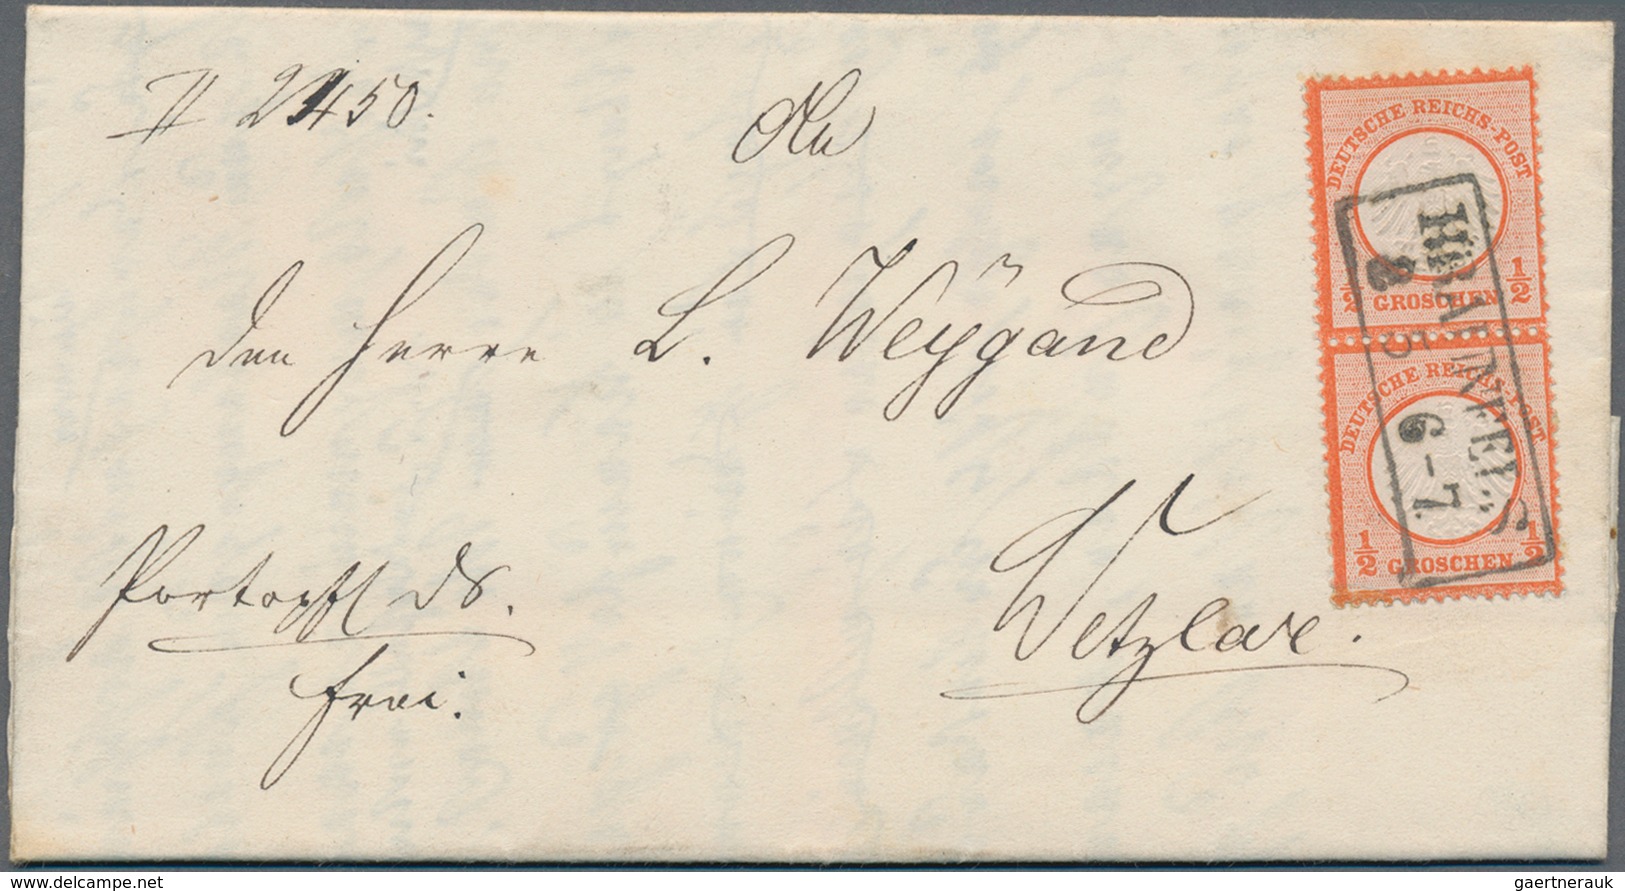 # 2450.
An
den Herrn L. Weygand
Wetzlar.
Portopfl DS.
frei.
DEUTSCHE REICHS-POST
1/2 GROSCHEN 1/2
DEUTSCHE REICHS-POST
1/2 GROSCHEN 1/2
BRAUNFELS
8 5 6-7.
delcampe.net
gaertnerauk